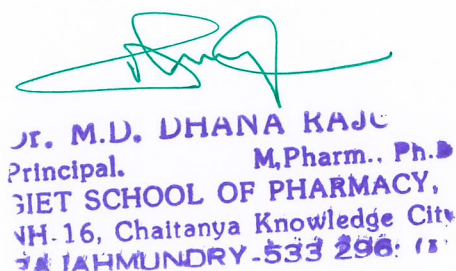 Dr. M.D. DHANA RAJU
Principal. M,Pharm., Ph.D
GIET SCHOOL OF PHARMACY,
NH-16, Chaitanya Knowledge City
RAJAHMUNDRY-533 296.